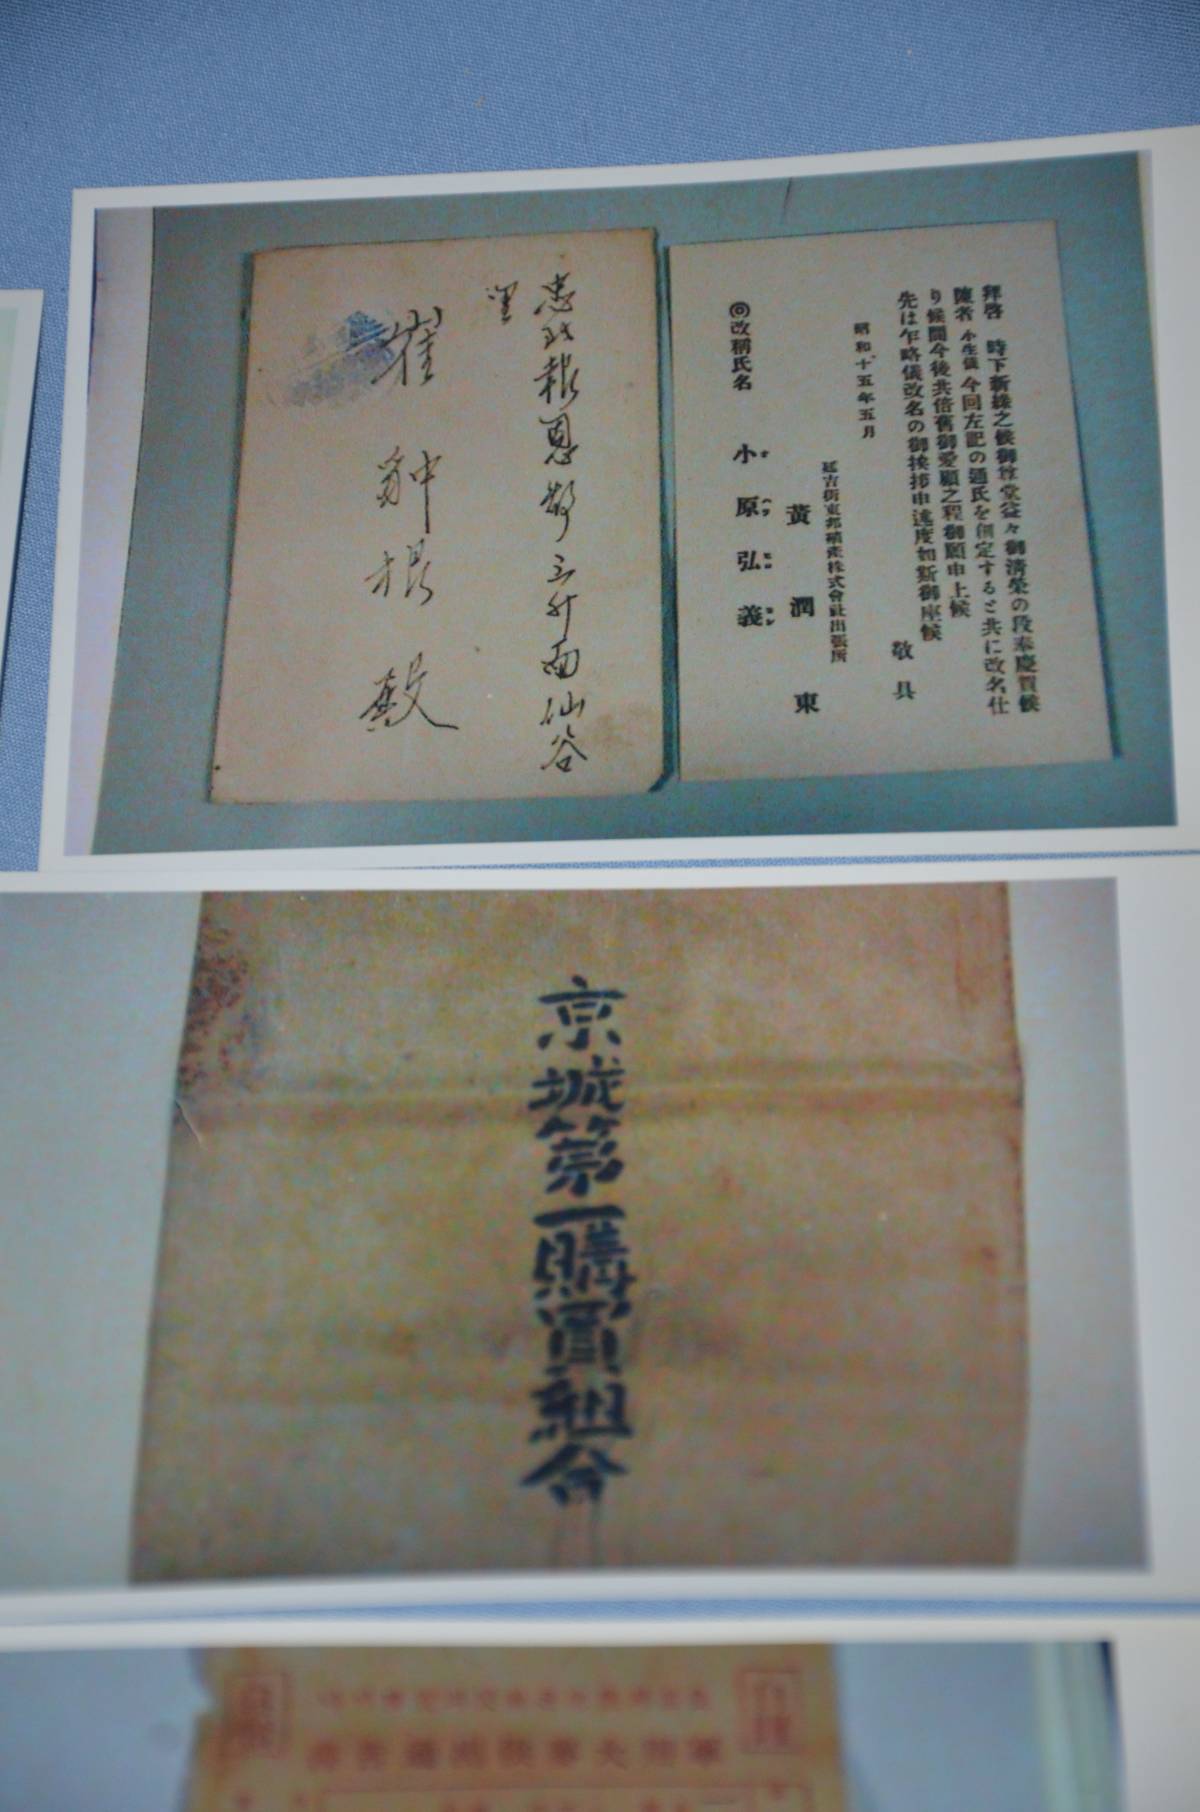 拜啓 時下新綠之候御尊堂益々御清榮の段奉慶賀候
陳者 小生儀 今回左記の通氏を創定すると共に改名仕
り候間今後共倍舊御愛顧之程御願申上候
先は乍略儀改名の御挨拶申述度如斯御座候
敬具
昭和十五年五月
延吉街東邦殖產株式會社出張所
黃潤東
◎改稱氏名 小原弘義
忠北報恩郡三升面仙谷
里
崔鈡根殿
京城第一購買組合